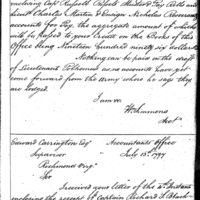 enclosing Capt Russell Bissell's
Lieut Charles Martin & Ensign Nicholas
accounts for Pay, the aggregate amount of which
will be passed to your Credit on the Books of this
Office being Nineteen hundred ninety six dollars
Nothing can be paid on the draft
of Lieutenant as no accounts have yet
come forward from the Army where he says they
are lodged.
I am &c
W Simmons
Acct
Edward Carrington Esqr
Supervisor
Richmond Virga
Sir
Accountants Office
July 15th 1794
I received your letter of the
enclosing the receipt of Captain Richard S. Black-